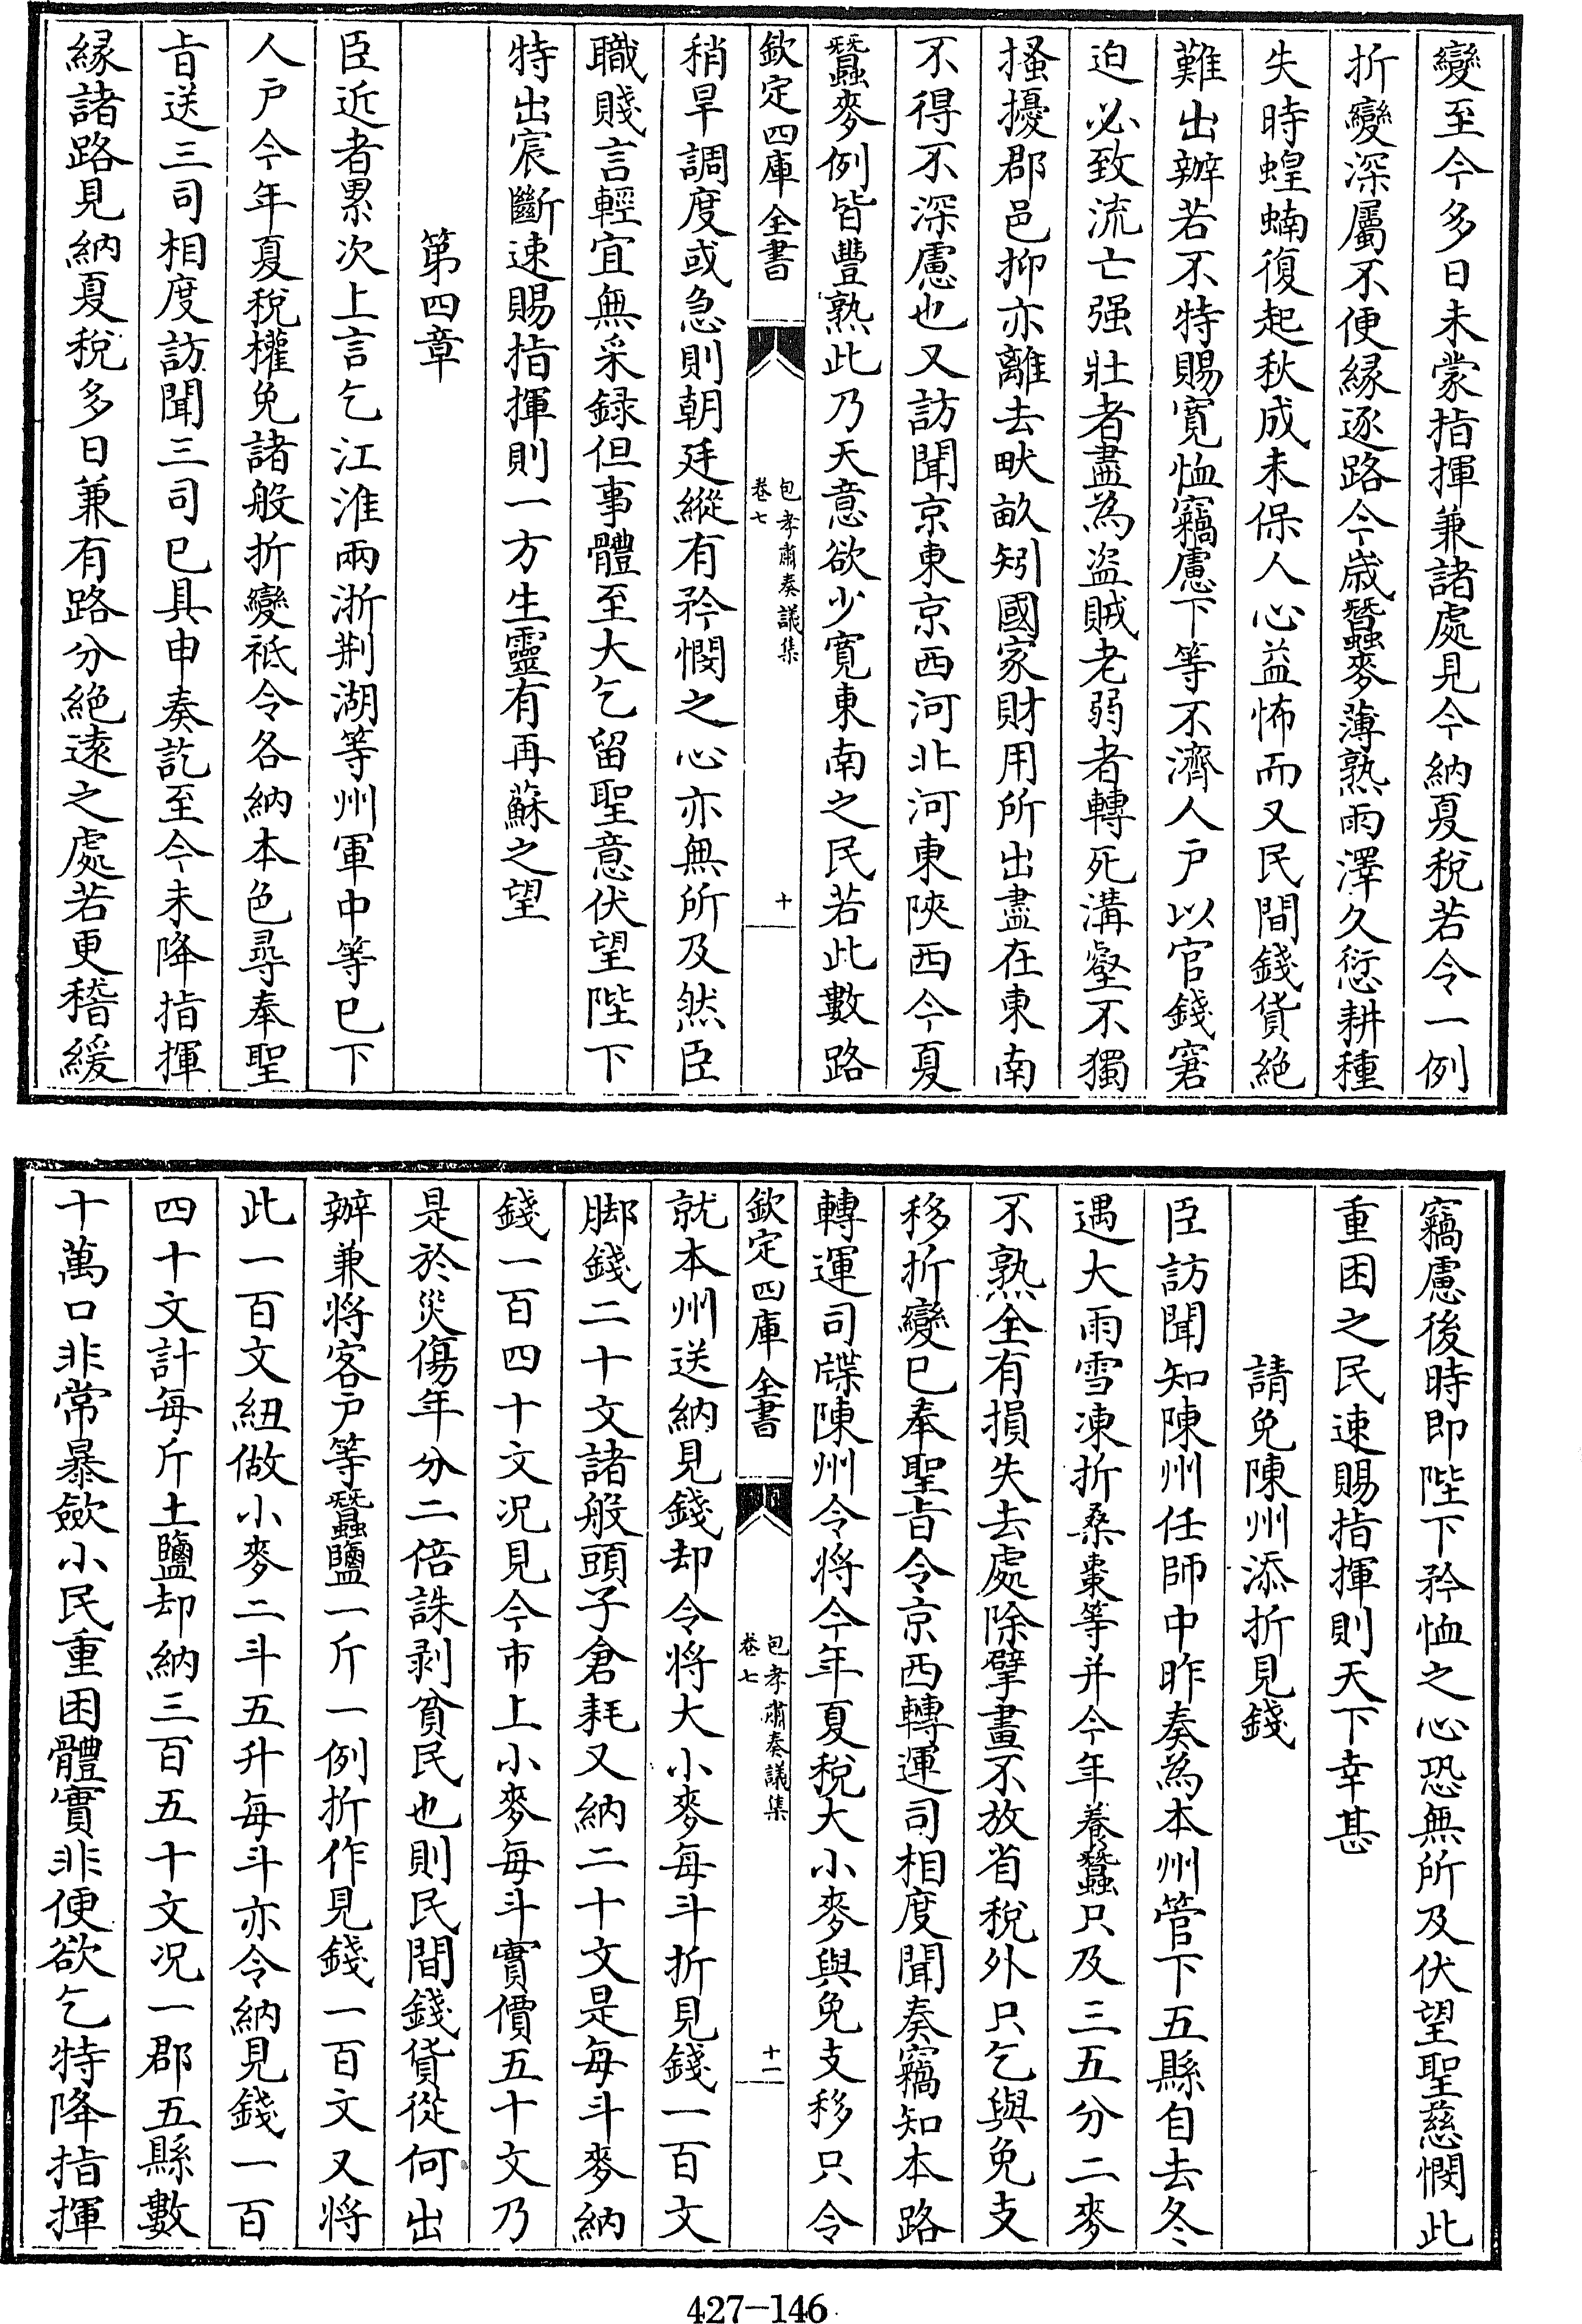 變至今多日未蒙指揮兼諸處見今納夏稅若令一例
折變深屬不便緣逐路今歲蠶麥薄熟雨澤久愆耕種
失時蝗蝻復起秋成未保人心益怖而又民間錢貨絶
難出辦若不特賜寛恤竊慮下等不濟人户以官錢窘
迫必致流亡强壯者盡為盗賊老弱者轉死溝壑不獨
搔擾郡邑抑亦離去畎畝矧國家財用所出盡在東南
不得不深慮也又訪聞京東京西河北河東陜西今夏
蠶麥例皆豐熟此乃天意欲少寛東南之民若此數路
欽定四庫全書
包孝肅奏議集
卷七
十
稍旱調度或急則朝廷縱有矜憫之心亦無所及然臣
職賤言輕宜無采録但事體至大乞留聖意伏望陛下
特出宸斷速賜指揮則一方生靈有再蘇之望
第四章
臣近者累次上言乞江淮兩浙荆湖等州軍中等已下
人户今年夏稅權免諸般折變祗令各納本色尋奉聖
㫖送三司相度訪聞三司已具申奏訖至今未降指揮
緣諸路見納夏稅多日兼有路分絶逺之處若更稽緩
竊慮後時即陛下矜恤之心恐無所及伏望聖慈憫此
重困之民速賜指揮則天下幸甚
請免陳州添折見錢
臣訪聞知陳州任師中昨奏為本州管下五縣自去冬
遇大雨雪凍折桑棗等并今年養蠶只及三五分二麥
不熟全有損失去處除擘畫不放省稅外只乞與免支
移折變已奉聖㫖令京西轉運司相度聞奏竊知本路
轉運司牒陳州令將今年夏稅大小麥與免支移只令
欽定四庫全書
包孝肅奏議集
卷七
十一
就本州送納見錢却令將大小麥每斗折見錢一百文
脚錢二十文諸般頭子倉耗又納二十文是每斗麥納
錢一百四十文况見今市上小麥每斗實價五十文乃
是於災傷年分二倍誅剥貧民也則民間錢貨從何出
辦兼將客户等蠶鹽一斤一例折作見錢一百文又將
此一百文紐做小麥二斗五升每斗亦令納見錢一百
四十文計每斤土鹽却納三百五十文况一郡五縣數
十萬口非常暴歛小民重困體實非便欲乞特降指揮
427-146